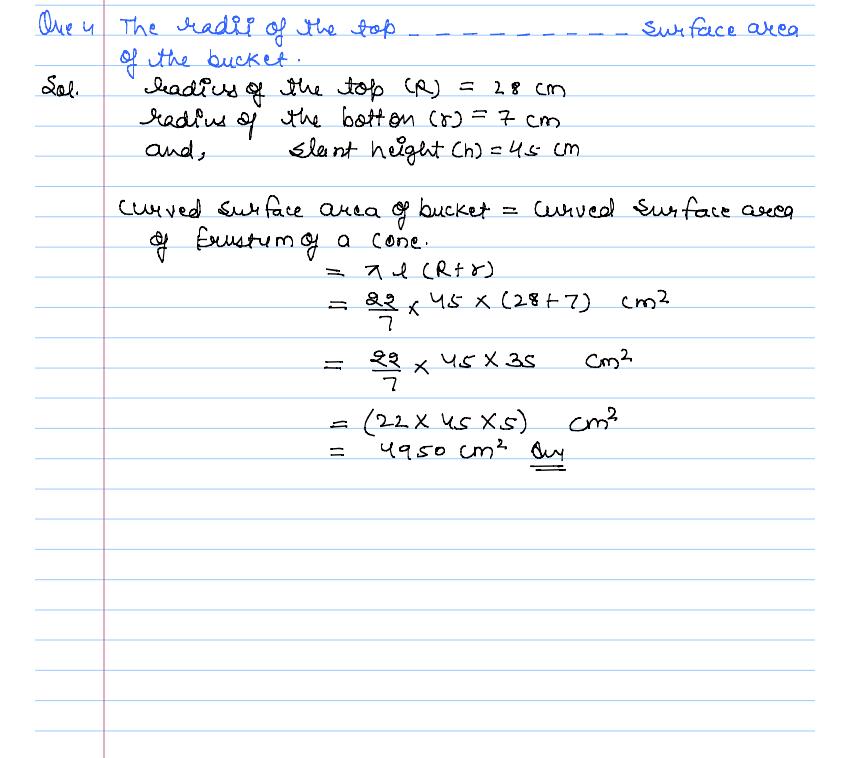 Que 4 The radii of the top - - - - - - - - - surface area
of the bucket.
Sol. radius of the top (R) = 28 cm
radius of the botton (r) = 7 cm
and, slant height (h) = 45 cm
curved surface area of bucket = curved surface area
of frustum of a cone.
= π l (R+r)
= 22/7 × 45 × (28+7) cm²
= 22/7 × 45 × 35 cm²
= (22 × 45 × 5) cm²
= 4950 cm² Ans